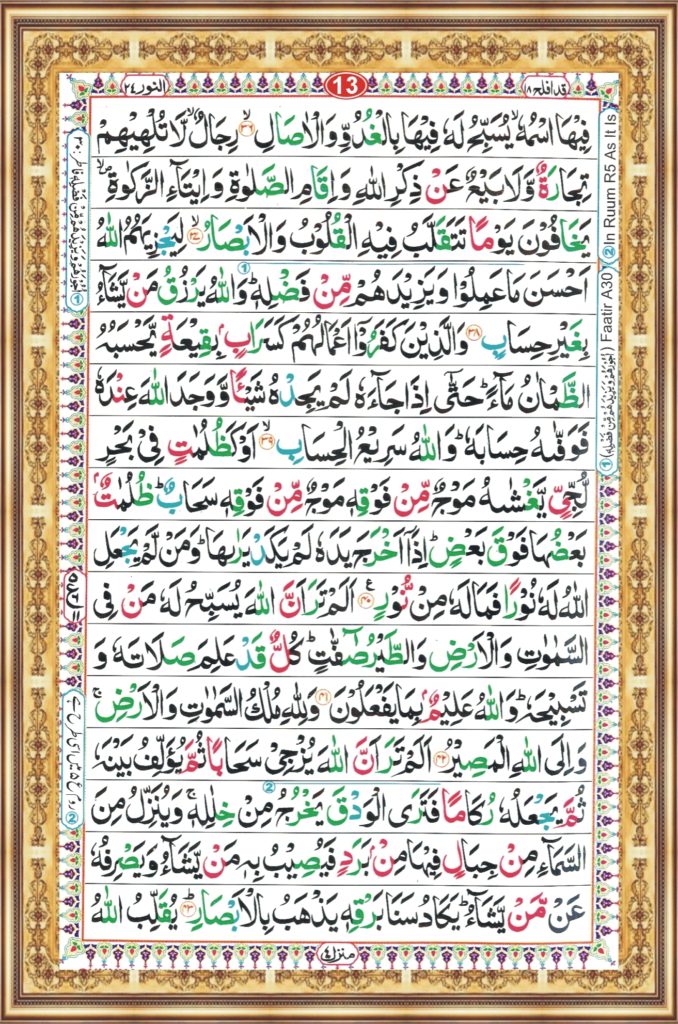 قد افلح ١٨
13
النور ٢٤
فِيْهَا اسْمُهٗ ۙ يُسَبِّحُ لَهٗ فِيْهَا بِالْغُدُوِّ وَالْاٰصَالِ ۙ‏﴿۳۶﴾ رِجَالٌ ۙ لَّا تُلْهِيْهِمْ
تِجَارَةٌ وَّلَا بَيْعٌ عَنْ ذِكْرِ اللّٰهِ وَاِقَامِ الصَّلٰوةِ وَاِيْتَآءِ الزَّكٰوةِ ۙ
يَخَافُوْنَ يَوْمًا تَتَقَلَّبُ فِيْهِ الْقُلُوْبُ وَالْاَبْصَارُ ۙ‏﴿۳۷﴾ لِيَجْزِيَهُمُ اللّٰهُ
اَحْسَنَ مَا عَمِلُوْا وَيَزِيْدَهُمْ مِّنْ فَضْلِهٖ ؕ وَاللّٰهُ يَرْزُقُ مَنْ يَّشَآءُ
بِغَيْرِ حِسَابٍ ﴿۳۸﴾ وَالَّذِيْنَ كَفَرُوْۤا اَعْمَالُهُمْ كَسَرَابٍۭ بِقِيْعَةٍ يَّحْسَبُهُ
الظَّمْاٰنُ مَآءً ؕ حَتّٰۤى اِذَا جَآءَهٗ لَمْ يَجِدْهُ شَيْـًٔا وَّوَجَدَ اللّٰهَ عِنْدَهٗ
فَوَفّٰىهُ حِسَابَهٗ ؕ وَاللّٰهُ سَرِيْعُ الْحِسَابِ ۙ‏﴿۳۹﴾ اَوْ كَظُلُمٰتٍ فِيْ بَحْرٍ
لُّجِّيٍّ يَّغْشٰىهُ مَوْجٌ مِّنْ فَوْقِهٖ مَوْجٌ مِّنْ فَوْقِهٖ سَحَابٌ ؕ ظُلُمٰتٌۢ
بَعْضُهَا فَوْقَ بَعْضٍ ؕ اِذَاۤ اَخْرَجَ يَدَهٗ لَمْ يَكَدْ يَرٰىهَا ؕ وَمَنْ لَّمْ يَجْعَلِ
اللّٰهُ لَهٗ نُوْرًا فَمَا لَهٗ مِنْ نُّوْرٍ ﴿۴۰﴾ اَلَمْ تَرَ اَنَّ اللّٰهَ يُسَبِّحُ لَهٗ مَنْ فِى
السَّمٰوٰتِ وَالْاَرْضِ وَالطَّيْرُ صٰٓفّٰتٍ ؕ كُلٌّ قَدْ عَلِمَ صَلَاتَهٗ وَ
تَسْبِيْحَهٗ ؕ وَاللّٰهُ عَلِيْمٌۢ بِمَا يَفْعَلُوْنَ ﴿۴۱﴾ وَلِلّٰهِ مُلْكُ السَّمٰوٰتِ وَالْاَرْضِ ۚ
وَاِلَى اللّٰهِ الْمَصِيْرُ ﴿۴۲﴾ اَلَمْ تَرَ اَنَّ اللّٰهَ يُزْجِيْ سَحَابًا ثُمَّ يُؤَلِّفُ بَيْنَهٗ
ثُمَّ يَجْعَلُهٗ رُكَامًا فَتَرَى الْوَدْقَ يَخْرُجُ مِنْ خِلٰلِهٖ ۚ وَيُنَزِّلُ مِنَ
السَّمَآءِ مِنْ جِبَالٍ فِيْهَا مِنْۢ بَرَدٍ فَيُصِيْبُ بِهٖ مَنْ يَّشَآءُ وَيَصْرِفُهٗ
عَنْ مَّنْ يَّشَآءُ ؕ يَكَادُ سَنَا بَرْقِهٖ يَذْهَبُ بِالْاَبْصَارِ ؕ‏﴿۴۳﴾ يُقَلِّبُ اللّٰهُ
منزل ٤
① (اُجُوْرَهُمْ وَيَزِيْدَهُمْ مِّنْ فَضْلِهٖ) Faatir A30 ② In Ruum R5 As It Is
① اُجُوْرَهُمْ وَيَزِيْدَهُمْ مِّنْ فَضْلِهٖ فاطر: ۳۰
② روم ع ۵ میں اسی طرح ہے